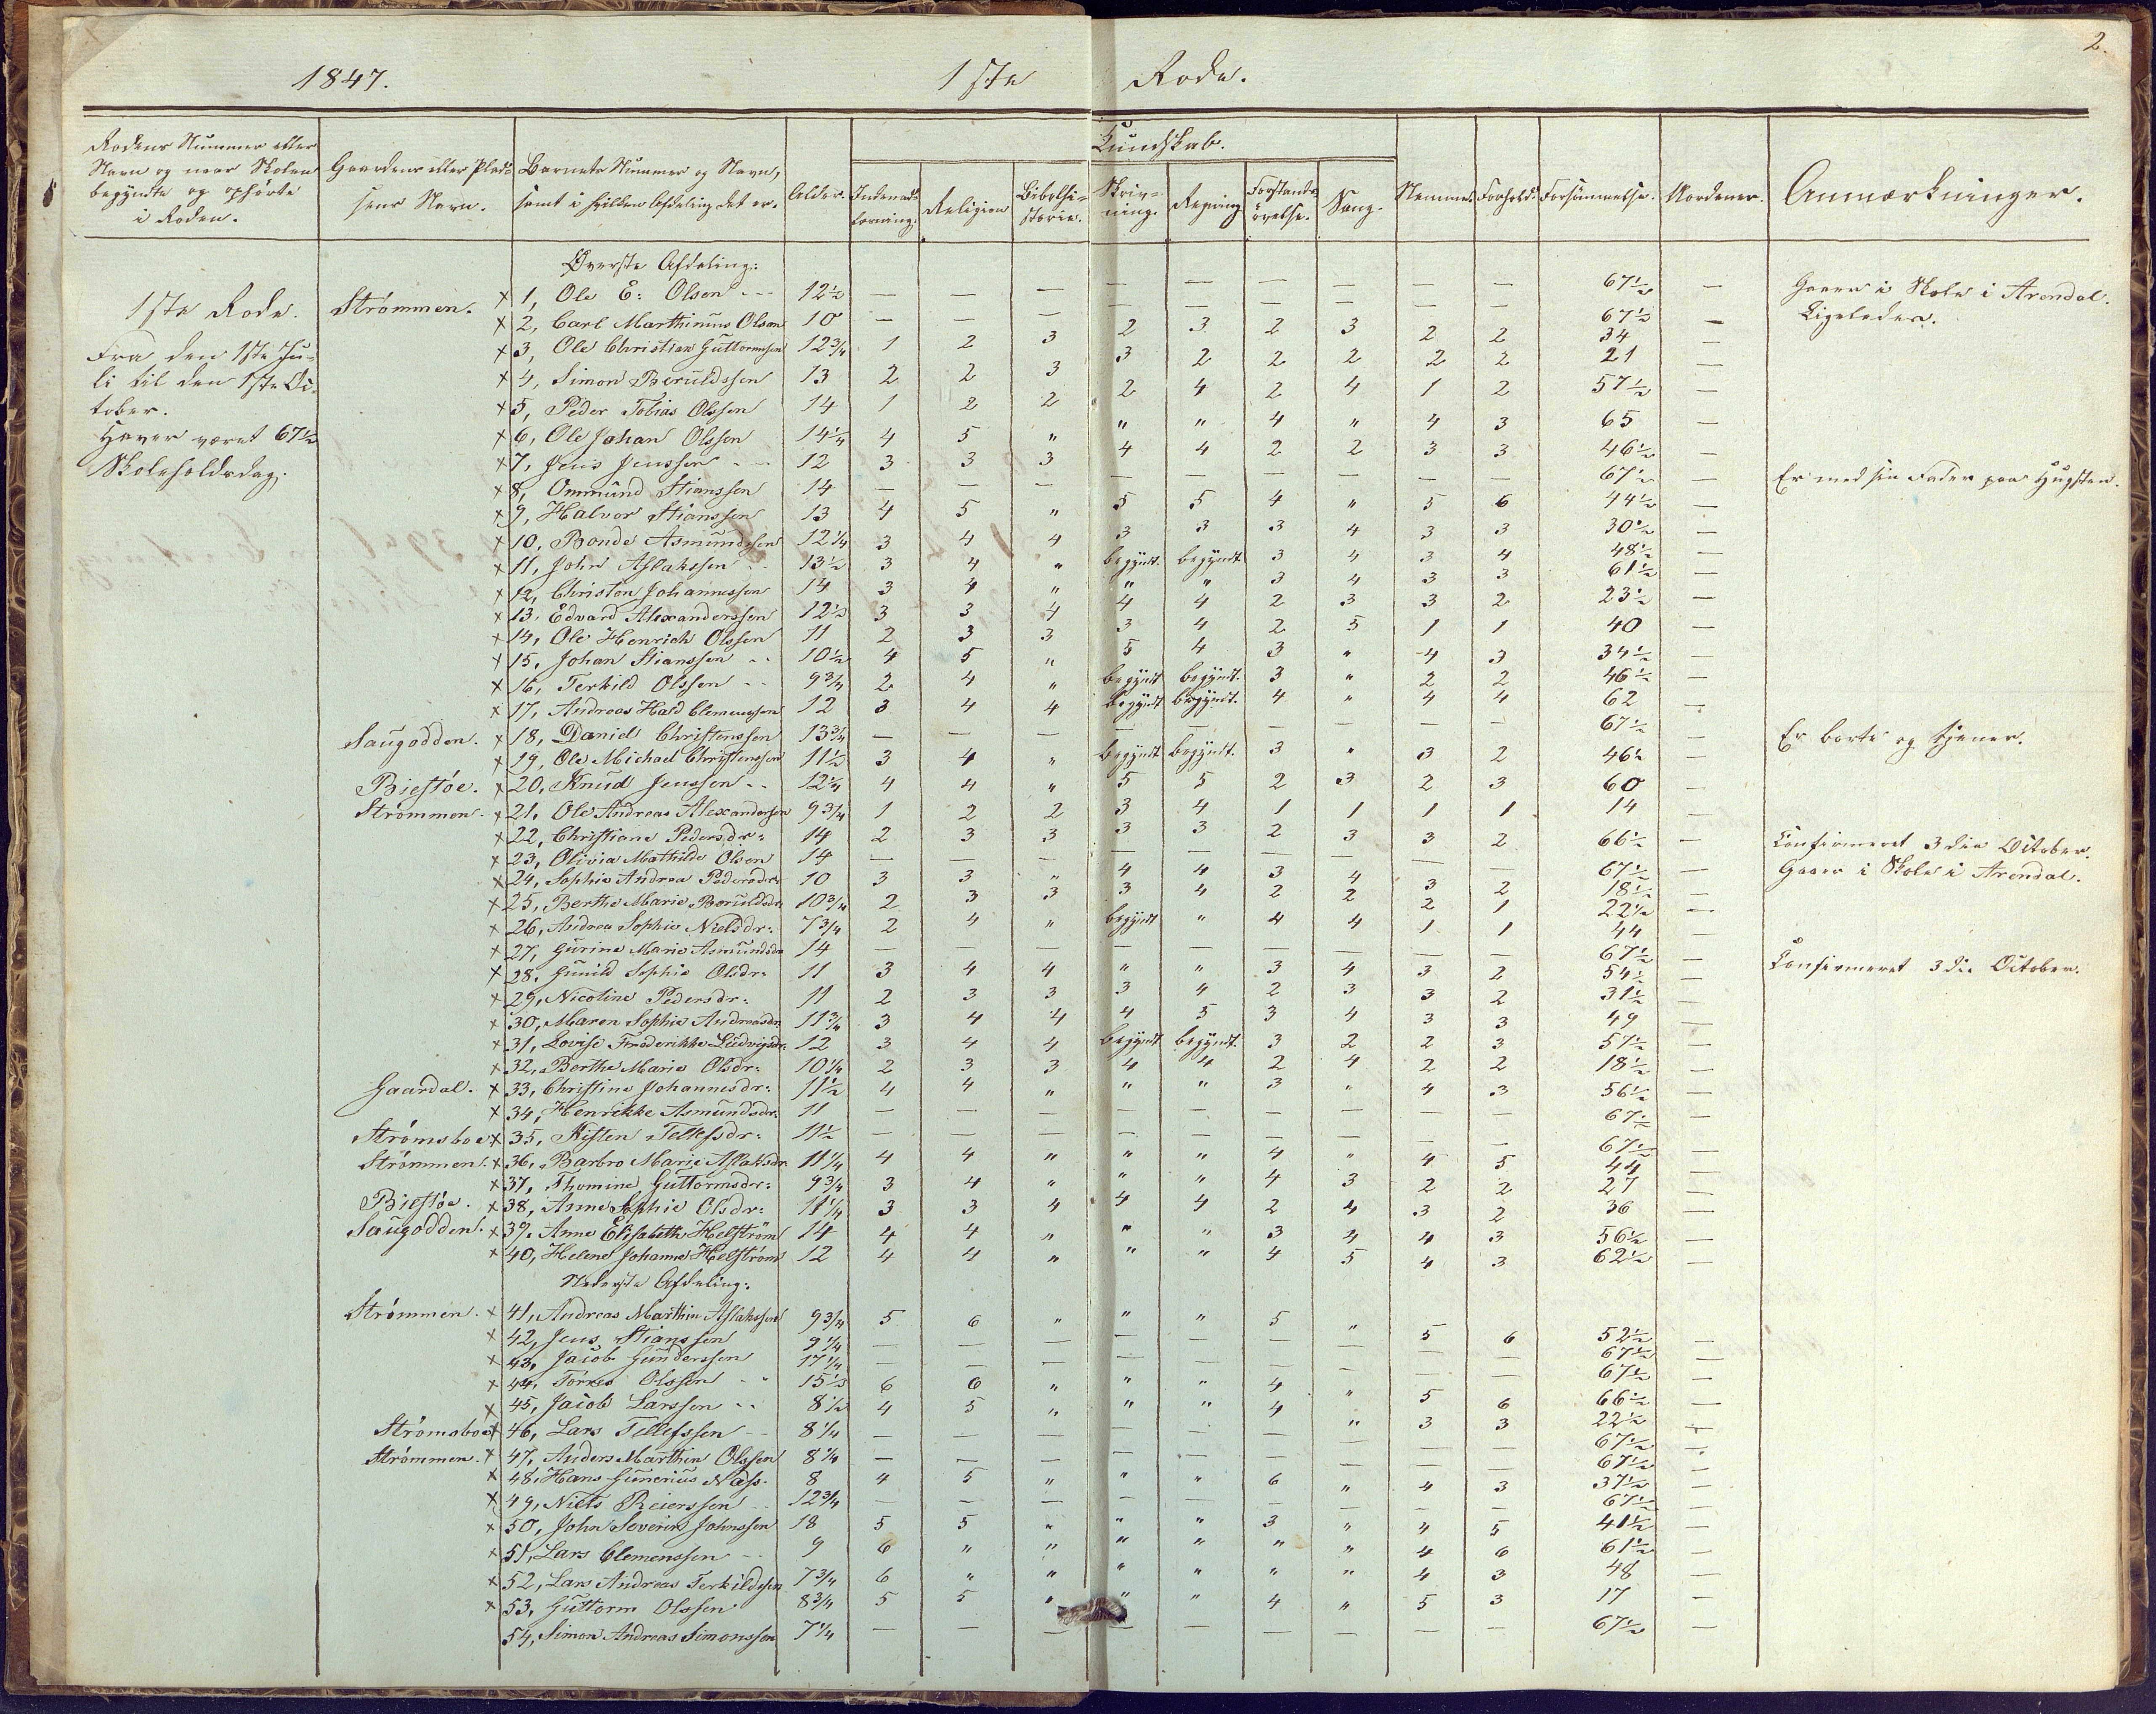 2.
1847. 1ste Rode.
Rodens Nummer eller Navn og naar Skolen begyndte og ophörte i Roden. | Gaardens eller Pladsens Navn. | Barnets Nummer og Navn, samt i hvilken Afdeling det er. | Alder. | Kundskab. | Religion | Bibelhistorie. | Skrivning. | Regning | Forstandsövelse. | Sang. | Nemme. | Forhold. | Forsömmelse. | Anmærkninger.
Øverste Afdeling:
1ste Rode.
Fra den 1ste Juli til den 1ste October.
Haver været 67½ Skoleholdsdag.
Strømmen. x 1, Ole E: Olsen 12½ — — — — — — — — — 67½ — Gaaer i Skole i Arendal.
x 2, Carl Marthinius Olsen 10 — — — — — — — — — 67½ — Ligeledes.
x 3, Ole Christian Guttormsen 12¾ 1 2 3 2 3 2 3 2 2 34 —
x 4, Simon Beruldssen 13 2 2 3 3 2 2 2 2 2 21 —
x 5, Peder Tobias Olssen 14 1 2 2 2 4 2 4 1 2 57½ —
x 6, Ole Johan Olssen 14¼ 4 5 " " " 4 " 4 3 65
x 7, Jens Jenssen 12 3 3 3 4 4 2 2 3 3 46½ —
x 8, Ommund Stianssen 14 — — — — — — — — — 67½ — Er med sin Fader paa Hugsten.
x 9, Halvor Stianssen 13 4 5 " 5 5 4 " 5 6 44½ —
x 10, Bonde Asmundssen 12¼ 3 4 4 3 3 3 4 3 3 30½ —
x 11, John Aslakssen 13½ 3 4 " begyndt. begyndt 3 4 3 4 48½ —
x 12, Christen Johannessen 14 3 4 " " " 3 4 3 3 61½ —
x 13, Edvard Alexanderssen 12½ 3 3 4 4 4 2 3 3 2 23½ —
x 14, Ole Henrich Olssen 11 2 3 3 3 4 2 5 1 1 40 —
x 15, Johan Stianssen 10½ 4 5 " 5 4 3 " 4 3 34½ —
x 16, Terkild Olssen 9¾ 2 4 " begyndt begyndt. 3 " 2 2 46½ —
x 17, Andreas Hald Clemenssen 12 3 4 4 begyndt begyndt. 4 " 4 4 62 —
Saugodden. x 18, Daniel Christenssen 13¾ — — — — — — — — — 67½ — Er borte og tjener.
x 19, Ole Michael Christenssen 11½ 3 4 " begyndt begyndt. 3 " 3 2 46½ —
Biestöe. x 20, Knud Jenssen 12¼ 4 4 " 5 5 2 3 2 3 60 —
Strømmen. x 21, Ole Andreas Alexandersen 9¾ 1 2 2 3 4 1 1 1 1 14 —
x 22, Christiane Pedersdr: 14 2 3 3 3 3 2 3 3 2 66½ — Confirmeret 3die October.
x 23, Olivia Mathilde Olsen 14 — — — — — — — — 67½ — Gaaer i Skole i Arendal.
x 24, Sophie Andrea Pedersdr: 10 3 3 " 4 4 3 4 3 2 18½ —
x 25, Berthe Marie Beruldsdr 10¾ 2 3 3 3 4 2 2 2 1 22½ —
x 26, Andrea Sophie Nielsdr: 7¾ 2 4 " begyndt " 4 4 1 1 44 —
x 27, Gurine Marie Asmundsdr 14 — — — — — — — — — 67½ — Confirmeret 3die October.
x 28, Gunild Sophie Olsdr: 11 3 4 4 " " 3 4 3 2 54½ —
x 29, Nicoline Pedersdr: 11 2 3 3 3 4 2 3 3 2 31½ —
x 30, Maren Sophie Andreasdr 11¾ 3 4 4 4 5 3 4 3 3 49 —
x 31, Lovise Frederikke Ludvigsdr: 12 3 4 4 begyndt begyndt. 3 2 2 3 57½ —
x 32, Berthe Marie Olsdr: 10¼ 2 3 3 4 4 2 4 2 2 18½ —
Gaardal. x 33, Christine Johannesdr: 11½ 4 4 " " " 3 " 4 3 56½ —
x 34, Henrikke Asmundsdr: 11 — — — — — — — — — 67½ —
Strømsboe x 35, Kisten Tellefsdr: 11½ — — — — — — — — — 67½ —
Strømmen. x 36, Barbro Marie Aslaksdr 11¼ 4 4 " " " 4 " 4 5 44 —
x 37, Thomine Guttormsdr: 9¾ 3 4 " " " 4 3 2 2 27 —
Biestöe. x 38, Anne Sophie Olsdr: 11¼ 3 3 4 4 4 2 4 3 2 36 —
Saugodden. x 39, Anne Elisabeth Helström 14 4 4 " " " 3 4 4 3 56½ —
x 40, Helene Johanne Helström 12 4 4 " " " 4 5 4 3 62½ —
Nederste Afdeling:
Strömmen. x 41, Andreas Marthin Aslakssen 9¾ 5 6 " " " 5 " 5 6 52½ —
x 42, Jens Stianssen 9¼ — — — — — — — — — 67½ —
x 43, Jacob Gunderssen 17¼ — — — — — — — — — 67½ —
x 44, Torres Olssen 15½ 6 6 " " " 4 " 5 6 66½ —
x 45, Jacob Larssen 8½ 4 5 " " " 4 " 3 3 22½ —
Strømsboe x 46, Lars Tellefssen 8¼ — — — — — — — — — 67½ —
Strømmen. x 47, Anders Marthin Olssen 8¼ — — — — — — — — — 67½ —
x 48, Hans Gunerius Næss. 8 4 5 " " " 6 " 4 3 37½ —
x 49, Niels Reierssen 12¾ — — — — — — — — — 67½ —
x 50, John Severin Johnssen 18 5 5 " " " 3 " 4 5 41½ —
x 51, Lars Clemenssen 9 6 " " " " " " 4 6 61½ —
x 52, Lars Andreas Terkildssen 7¾ 6 " " " " " " 4 3 48 —
x 53, Guttorm Olssen 8¾ 5 5 " " " 4 " 5 3 17 —
54, Simon Andreas Simonssen 7¼ — — — — — — — — — 67½ —